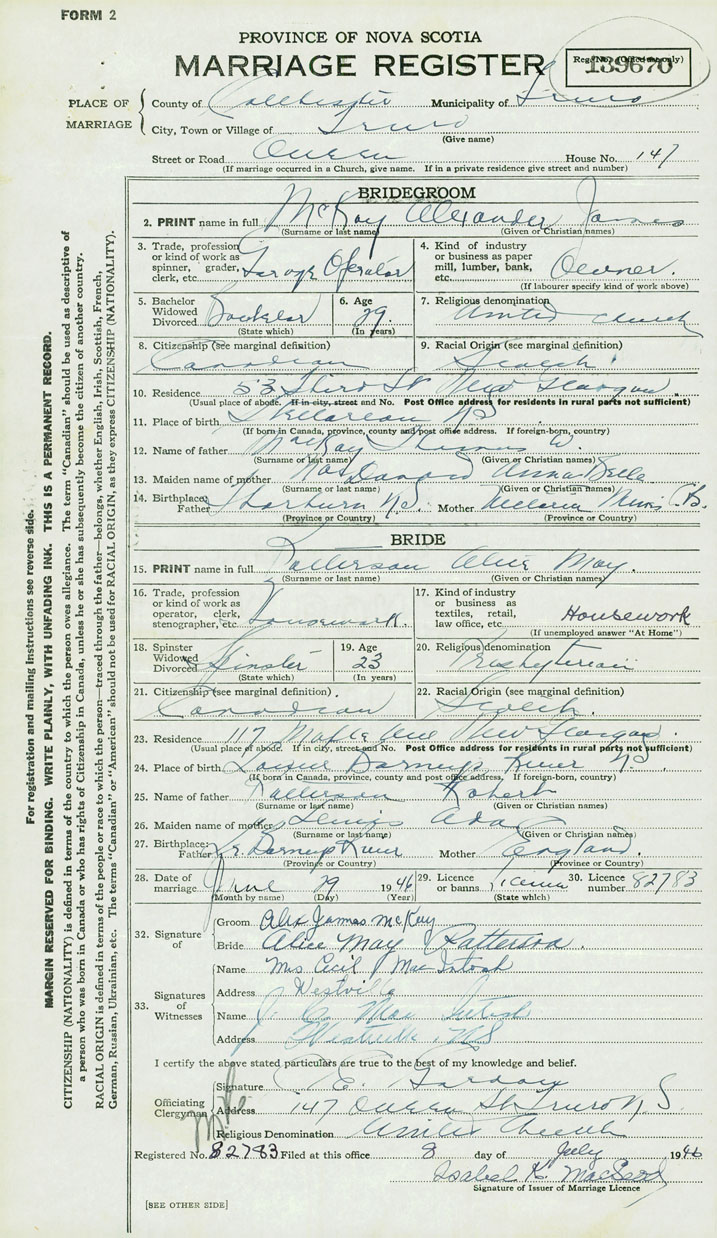 FORM 2
PROVINCE OF NOVA SCOTIA
MARRIAGE REGISTER
Reg. No. (Office use only)
139670
PLACE OF MARRIAGE
County of Colchester Municipality of Truro
City, Town or Village of Truro
(Give name)
Street or Road Queen House No. 147
(If marriage occurred in a Church, give name. If in a private residence give street and number)
BRIDEGROOM
2. PRINT name in full McKay Alexander James
(Surname or last name) (Given or Christian names)
3. Trade, profession or kind of work as spinner, grader, clerk, etc. Garage Operator
4. Kind of industry or business as paper mill, lumber, bank, etc. Owner.
(If labourer specify kind of work above)
5. Bachelor Widowed Divorced Bachelor (State which)
6. Age 29. (In years)
7. Religious denomination United Church
8. Citizenship (see marginal definition) Canadian
9. Racial Origin (see marginal definition) Scotch
10. Residence 53 St New Glasgow
(Usual place of abode. If in city, street and No. Post Office address for residents in rural parts not sufficient)
11. Place of birth NS
(If born in Canada, province, county and post office address. If foreign-born, country)
12. Name of father MacKay Thomas W.
(Surname or last name) (Given or Christian names)
13. Maiden name of mother MacDonald Anna Belle
(Surname or last name) (Given or Christian names)
14. Birthplace: Father Thorburn N.S. Mother
(Province or Country) (Province or Country)
BRIDE
15. PRINT name in full Patterson Alice May.
(Surname or last name) (Given or Christian names)
16. Trade, profession or kind of work as operator, clerk, stenographer, etc. Housework.
17. Kind of industry or business as textiles, retail, law office, etc. Housework
(If unemployed answer "At Home")
18. Spinster Widowed Divorced Spinster (State which)
19. Age 23 (In years)
20. Religious denomination Presbyterian
21. Citizenship (see marginal definition) Canadian
22. Racial Origin (see marginal definition) Scotch.
23. Residence 117 Maple Ave New Glasgow
(Usual place of abode. If in city, street and No. Post Office address for residents in rural parts not sufficient)
24. Place of birth Lower Barneys River NS
(If born in Canada, province, county and post office address. If foreign-born, country)
25. Name of father Patterson Robert
(Surname or last name) (Given or Christian names)
26. Maiden name of mother Ada
(Surname or last name) (Given or Christian names)
27. Birthplace: Father Barneys River Mother England
(Province or Country) (Province or Country)
28. Date of marriage June 29 1946
(Month by name) (Day) (Year)
29. Licence or banns Licence (State which)
30. Licence number 82783
32. Signature of
Groom Alex James McKay
Bride Alice May Patterson.
33. Signatures of Witnesses
Name Mrs Cecil J MacIntosh
Address Westville
Name J. C. MacIntosh
Address Westville NS
I certify the above stated particulars are true to the best of my knowledge and belief.
Officiating Clergyman
Signature
Address 147 Queen St Truro N S
Religious Denomination United Church
Registered No. 82783 Filed at this office 8 day of July 1946
Isabel K. MacLeod
Signature of Issuer of Marriage Licence
[SEE OTHER SIDE]
For registration and mailing instructions see reverse side.
MARGIN RESERVED FOR BINDING. WRITE PLAINLY, WITH UNFADING INK. THIS IS A PERMANENT RECORD.
CITIZENSHIP (NATIONALITY) is defined in terms of the country to which the person owes allegiance. The term "Canadian" should be used as descriptive of
a person who was born in Canada or who has rights of Citizenship in Canada, unless he or she has subsequently become the citizen of another country.
RACIAL ORIGIN is defined in terms of the people or race to which the person—traced through the father—belongs, whether English, Irish, Scottish, French,
German, Russian, Ukrainian, etc. The terms "Canadian" or "American" should not be used for RACIAL ORIGIN, as they express CITIZENSHIP (NATIONALITY).